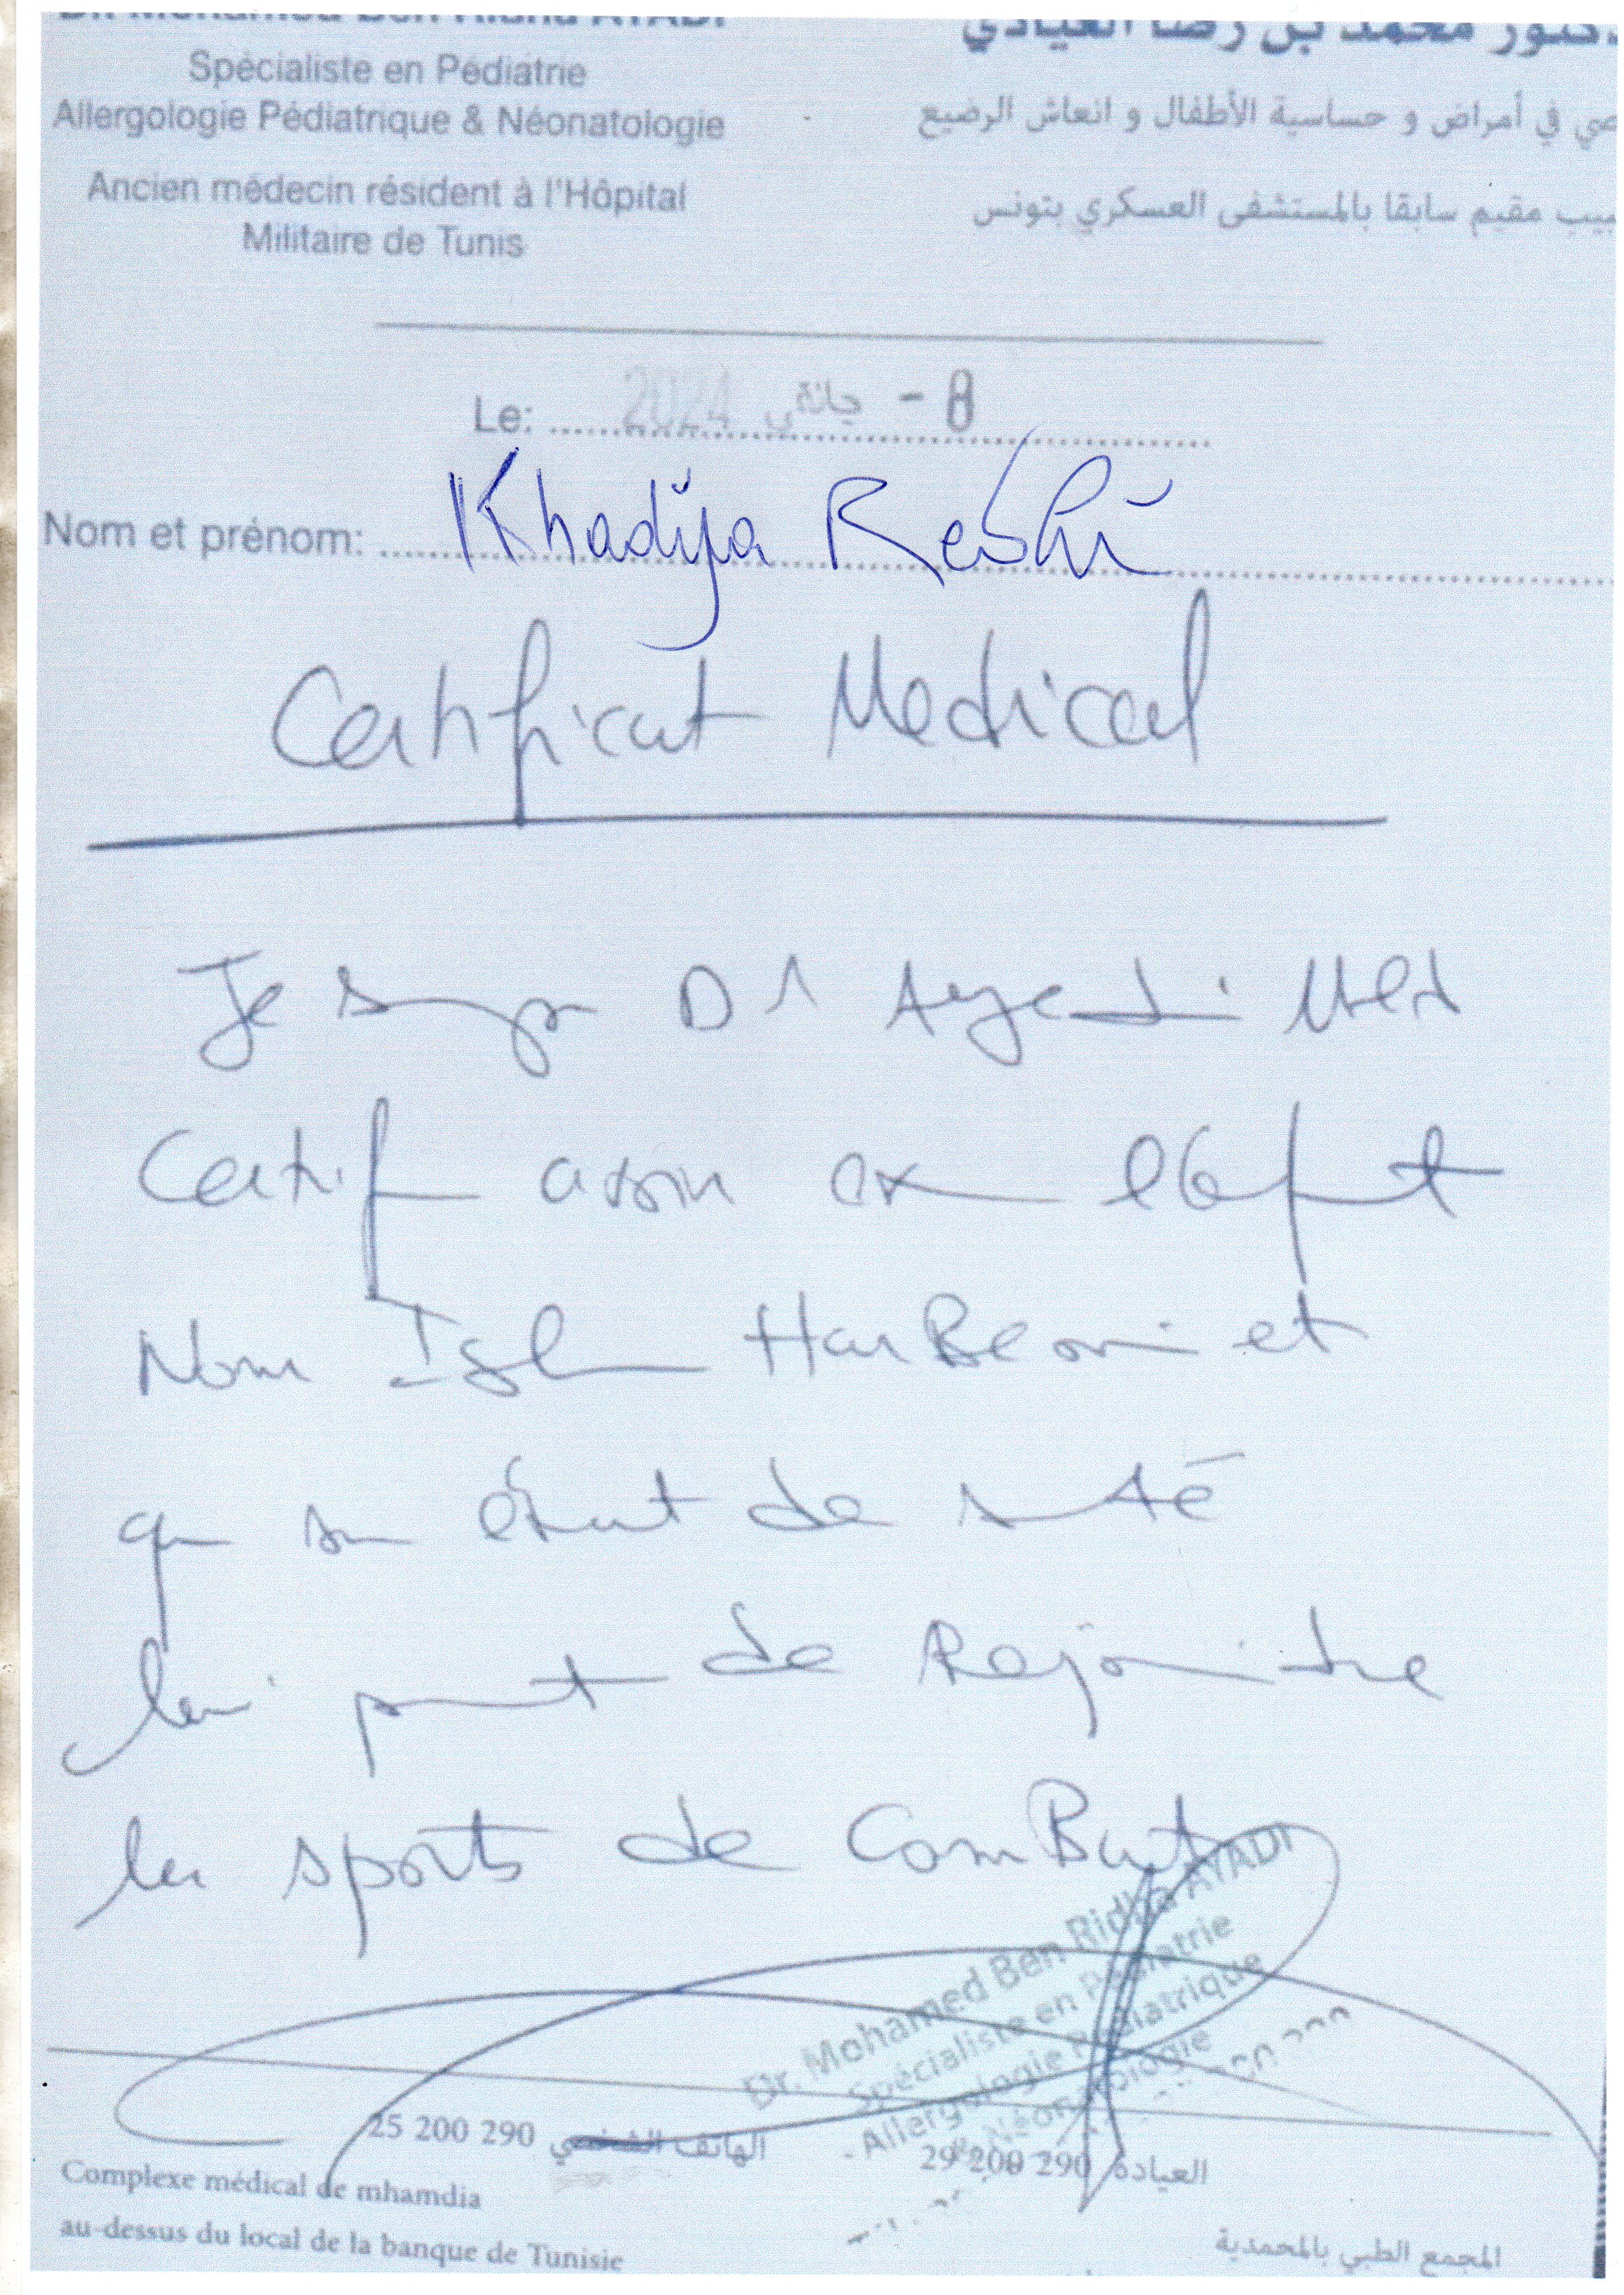 Dr. Mohamed Ben Ridha AYADI
دكتور محمد بن رضا العيادي
Spécialiste en Pédiatrie
Allergologie Pédiatrique & Néonatologie
صي في أمراض و حساسية الأطفال و انعاش الرضيع
Ancien médecin résident à l'Hôpital
Militaire de Tunis
بيب مقيم سابقا بالمستشفى العسكري بتونس
Le: 8 - جانفي 2024
Nom et prénom: Khadija
Certificat Medical
Je Dr Ayadi
Certif avoir
Nom et
que son état de santé
lui de Rejointre
les sports de ComBat
Dr. Mohamed Ben Ridha AYADI
Spécialiste en Pédiatrie
- Allergologie Pédiatrique
& Néonatologie
25 200 290 الهاتف الشخصي
29 200 290 العيادة
Complexe médical de mhamdia
au-dessus du local de la banque de Tunisie
المجمع الطبي بالمحمدية